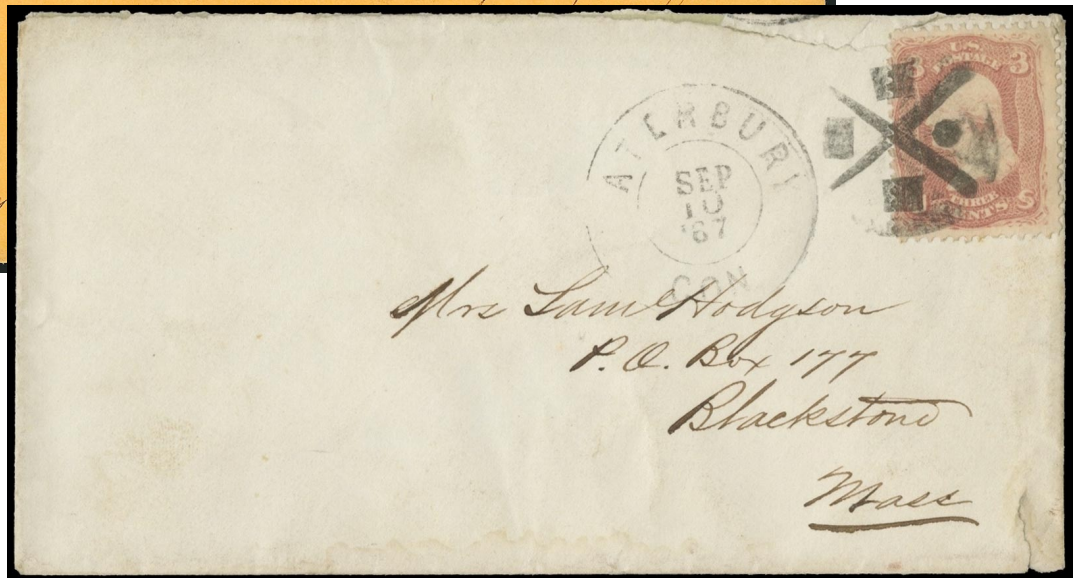 U.S.
POSTAGE
3 3
THREE
CENTS
ATERBURY
SEP
10
'67
CON
Mrs Saml Hodgson
P. O. Box 177
Blackstone
Mass